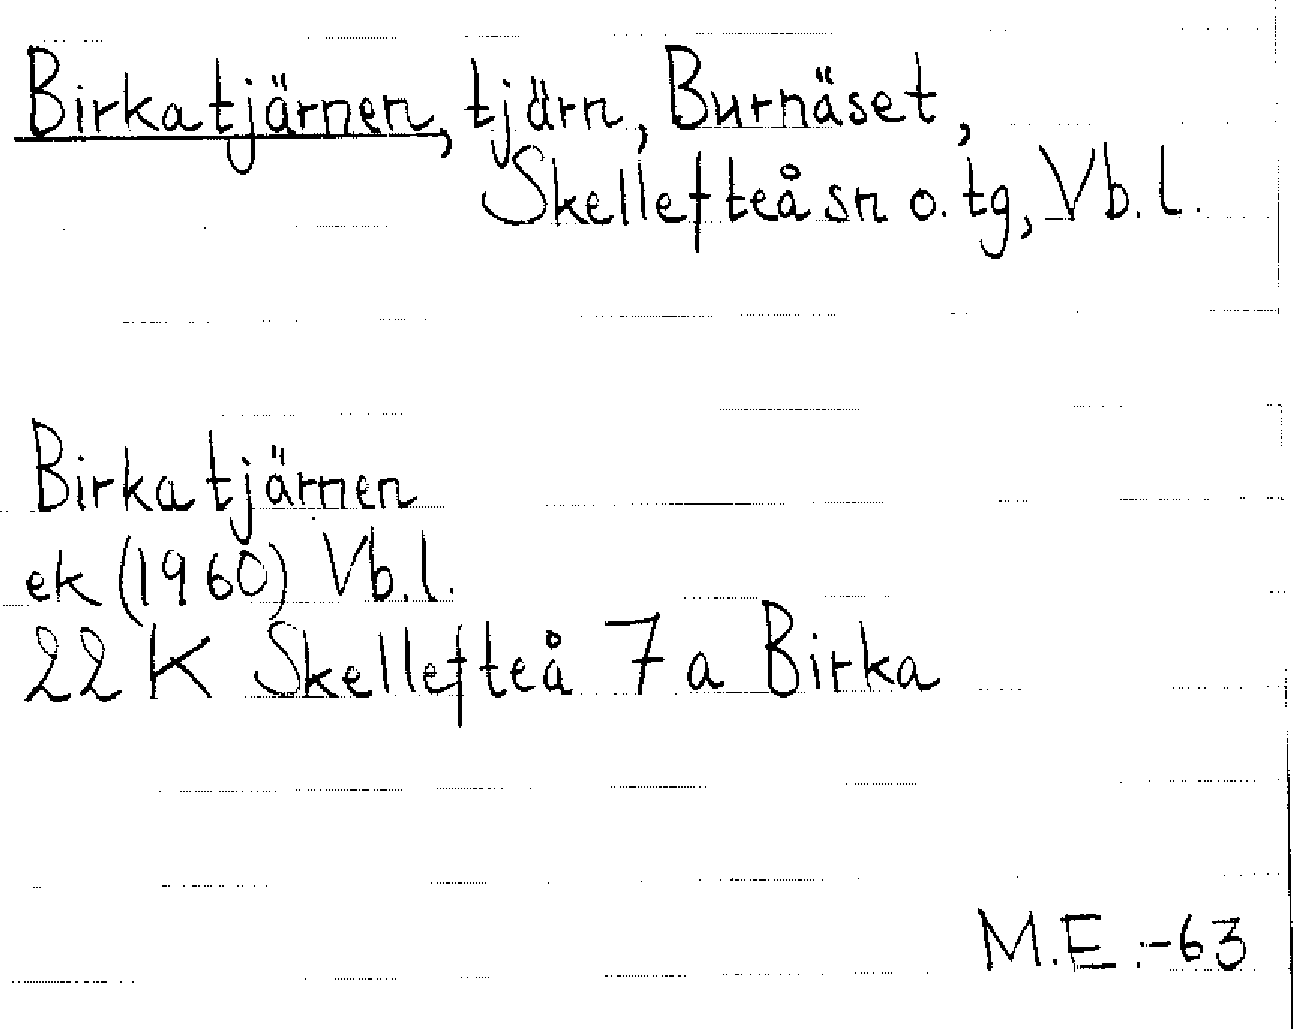 Birkatjärnen, tjärn, Burnäset,
Skellefteå sn o. tg, Vb. l.
Birkatjärnen
ek (1960) Vb. l.
22 K Skellefteå 7a Birka
M.E. -63